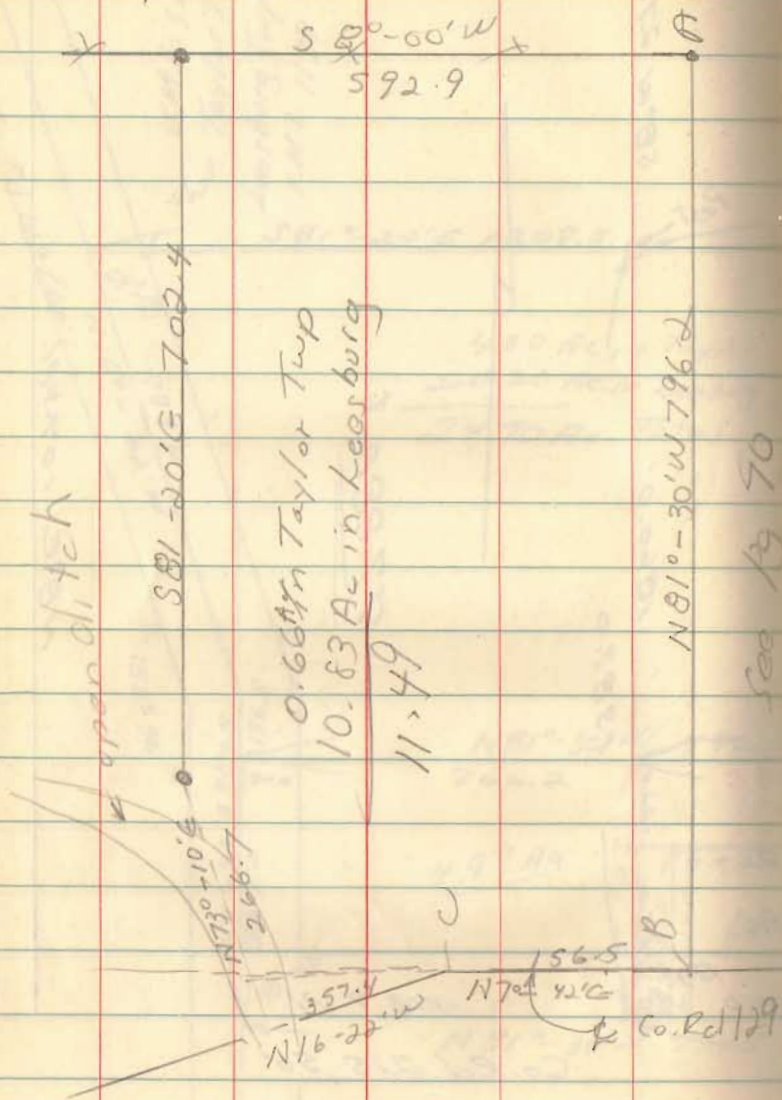 A
S 8°-00'W
592.9
S81-20'E 702.4
0.66 Ac in Taylor Twp
10.83 Ac in Leesburg
11.49
N81°-30'W 796.2
See Pg 70
open ditch
N73°-10'E
266.7
C
B
357.4
N16-22'W
56.5
N7° 42'E
℄ Co. Rd 129